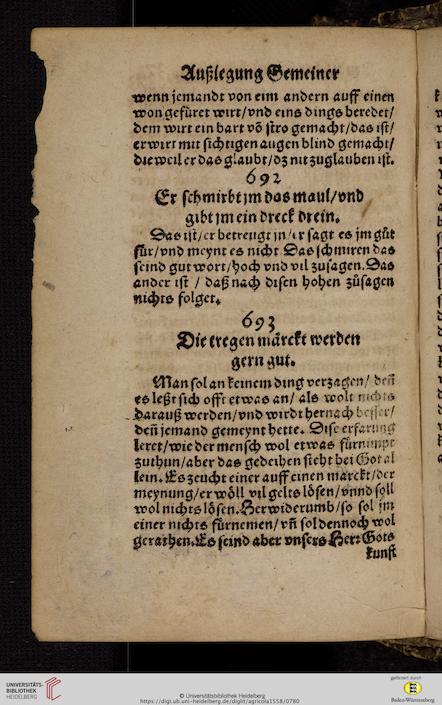 Außlegung Gemeiner
wenn jemandt von eim andern auff einen
won gefüret wirt/vnd eins dings beredet/
dem wirt ein bart võ stro gemacht/das ist/
er wirt mit sichtigen augen blind gemacht/
dieweil er das glaubt/dz nit zuglauben ist.
692
Er schmirbt jm das maul/vnd
gibt jm ein dreck drein.
Das ist/er betreugt jn/er sagt es jm gůt
für/vnd meynt es nicht. Das schmiren das
seind gut wort/hoch vnd vil zusagen. Das
ander ist / daß nach disen hohen zůsagen
nichts folget.
693
Die tregen märckt werden
gern gut.
Man sol an keinem ding verzagen/ deñ
es leßt sich offt etwas an/ als wolt nichts
darauß werden/vnd wirdt hernach besser/
deñ jemand gemeynt hette. Dise erfarung
leret/wie der mensch wol etwas fürnimpt
zuthun/aber das gedeihen steht bei Got al
lein. Es zeucht einer auff einen marckt/der
meynung/er wöll vil gelts lösen/vnnd soll
wol nichts lösen. Herwiderumb/so sol jm
einer nichts fürnemen/vñ sol dennoch wol
gerathen. Es seind aber vnsers Herr Gots
kunst
UNIVERSITÄTS-
BIBLIOTHEK
HEIDELBERG
© Universitätsbibliothek Heidelberg
https://digi.ub.uni-heidelberg.de/diglit/agricola1558/0780
gefördert durch
Baden-Württemberg